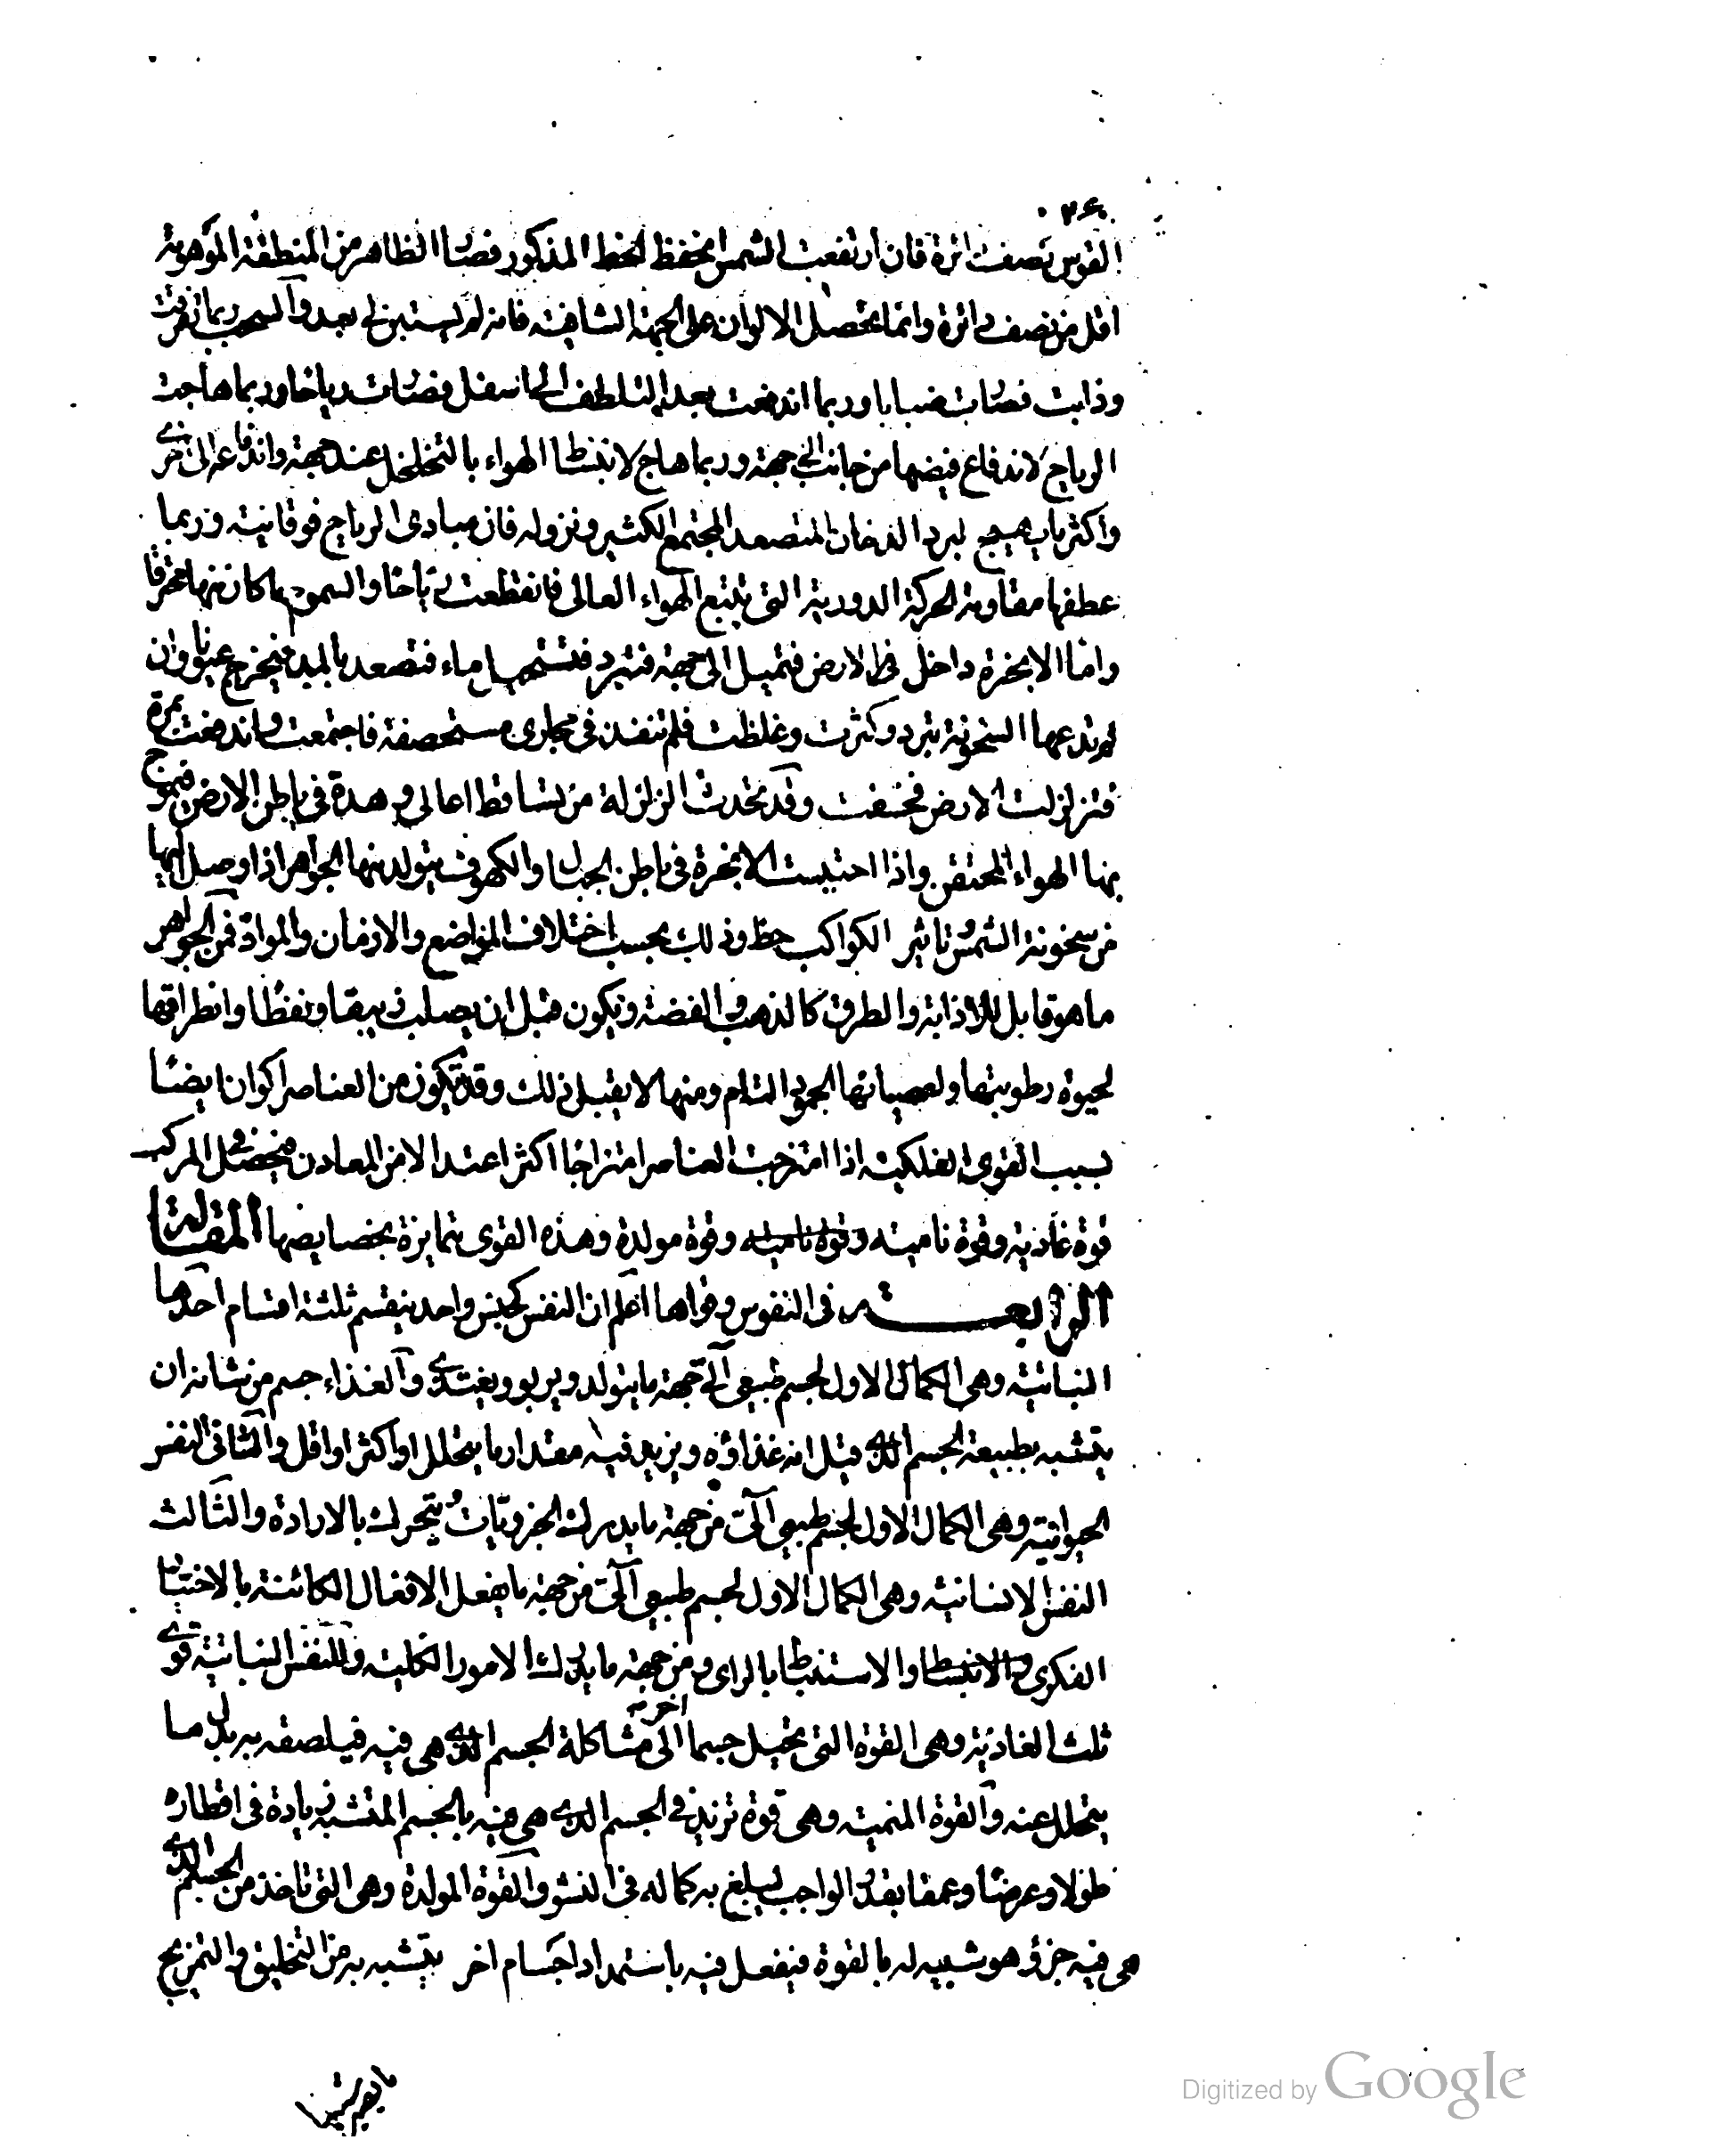 ٢٤٠
القوس نصف دائرة فان ارتفعت الشمس انخفض الخط المذكور فصار الظاهر من المنطقة الموهومة
اقل من نصف دائرة وانما تحصل الالوان على الجهة الشافة فانه لم يستبن لى بعد والسحب ربما تفرقت
وذابت فصارت ضبابا وربما اندفعت بعد التلطف الى اسفل فصارت رياحا وربما هاجت
الرياح لاندفاع فيضها من جانب الى جهة وربما هاج لانبساط الهواء بالتخلخل عند جهة واندفاعه الى اخرى
واكثر ما يهيج لبرد الدخان المتصعد المجتمع الكثير ونزوله فان مبادى الرياح فوقانية وربما
عطفها مقاومة الحركة الدورية التى يتبع الهواء العالى فانعطفت رياحا والسموم ما كان منها محترقا
واما الابخرة داخل الارض فتميل الى جهة فتبرد فتستحيل ماء فتصعد بالمد فيخرج عيونا وان
لم تدعها السخونة تبرد وكثرت وغلظت فلم تنفذ فى مجارى مستحصفة فاجتمعت واندفعت بمرة
فتزلزلت الارض فخسفت وقد تحدث الزلزلة من تساقط اعالى وهدة فى باطن الارض فيموج
بها الهواء المحتقن واذا احتبست الابخرة فى باطن الجبال والكهوف يتولد منها الجواهر اذا وصل اليها
من سخونة الشمس تاثير الكواكب حظ وذلك بحسب اختلاف المواضع والازمان والمواد فمن الجواهر
ما هو قابل للاذابة والطرق كالذهب والفضة ويكون قبل ان يصلب زيبقا ونفطا وانطراقها
لحيوة رطوبتها ولعصيانها الجمود التام ومنها ما لا يقبل ذلك وقد يتكون من العناصر اكوان ايضا
بسبب القوى الفلكية اذا امتزجت العناصر امتزاجا اكثر اعتدالا من المعادن فيحصل فى المركب
قوة غاذية وقوة نامية وقوة نامية وقوة مولدة وهذه القوى متمايزة بخصايصها المقالة
الرابعة فى النفوس وقواها اعلم ان النفس كجنس واحد ينقسم ثلثة اقسام احدها
النباتية وهى الكمال الاول لجسم طبيعى آلى من جهة ما يتولد ويربو ويغتذى والغذاء جسم من شانه ان
يتشبه بطبيعة الجسم الذى قيل انه غذاؤه ويزيد فيه مقدار ما يتحلل او اكثر او اقل والثانى النفس
الحيوانية وهى الكمال الاول لجسم طبيعى آلى من جهة ما يدرك الجزويات ويتحرك بالارادة والثالث
النفس الانسانية وهى الكمال الاول لجسم طبيعى آلى من جهة ما يفعل الافعال الكائنة بالاختيار
الفكرى والانبساط والاستنباط بالراى ومن جهة ما يدرك الامور الكلية وللنفس النباتية قوى
ثلث الغاذية وهى القوة التى تحيل جسما اخر الى مشاكلة الجسم الذى هى فيه فيلصقه به بدل ما
يتحلل عنه والقوة المنمية وهى قوة تزيد فى الجسم الذى هى فيه بالجسم المتشبه زيادة فى اقطاره
طولا وعرضا وعمقا بقدر الواجب ليبلغ به كماله فى النشو والقوة المولدة وهى التى تاخذ من الجسم الذى
هى فيه جزؤ هو شبيه له بالقوة فيفعل فيه باستمداد اجسام اخر يتشبه به من التخليق والتمزيج
Digitized by Google